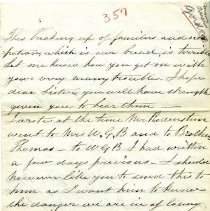 357
This breaking up of families and
which is our travel, is terrible
Let me know how you get on with
your very many troubles. I hope
dear Sister, you will have strength
given you to bear them
I wrote at the time Mr
went to Mr W.G.B and to Brother
Thomas — to W.G.B I had written
a few days previous. I should
however like you to send this to
him as I want him to know
the danger we are in of losing